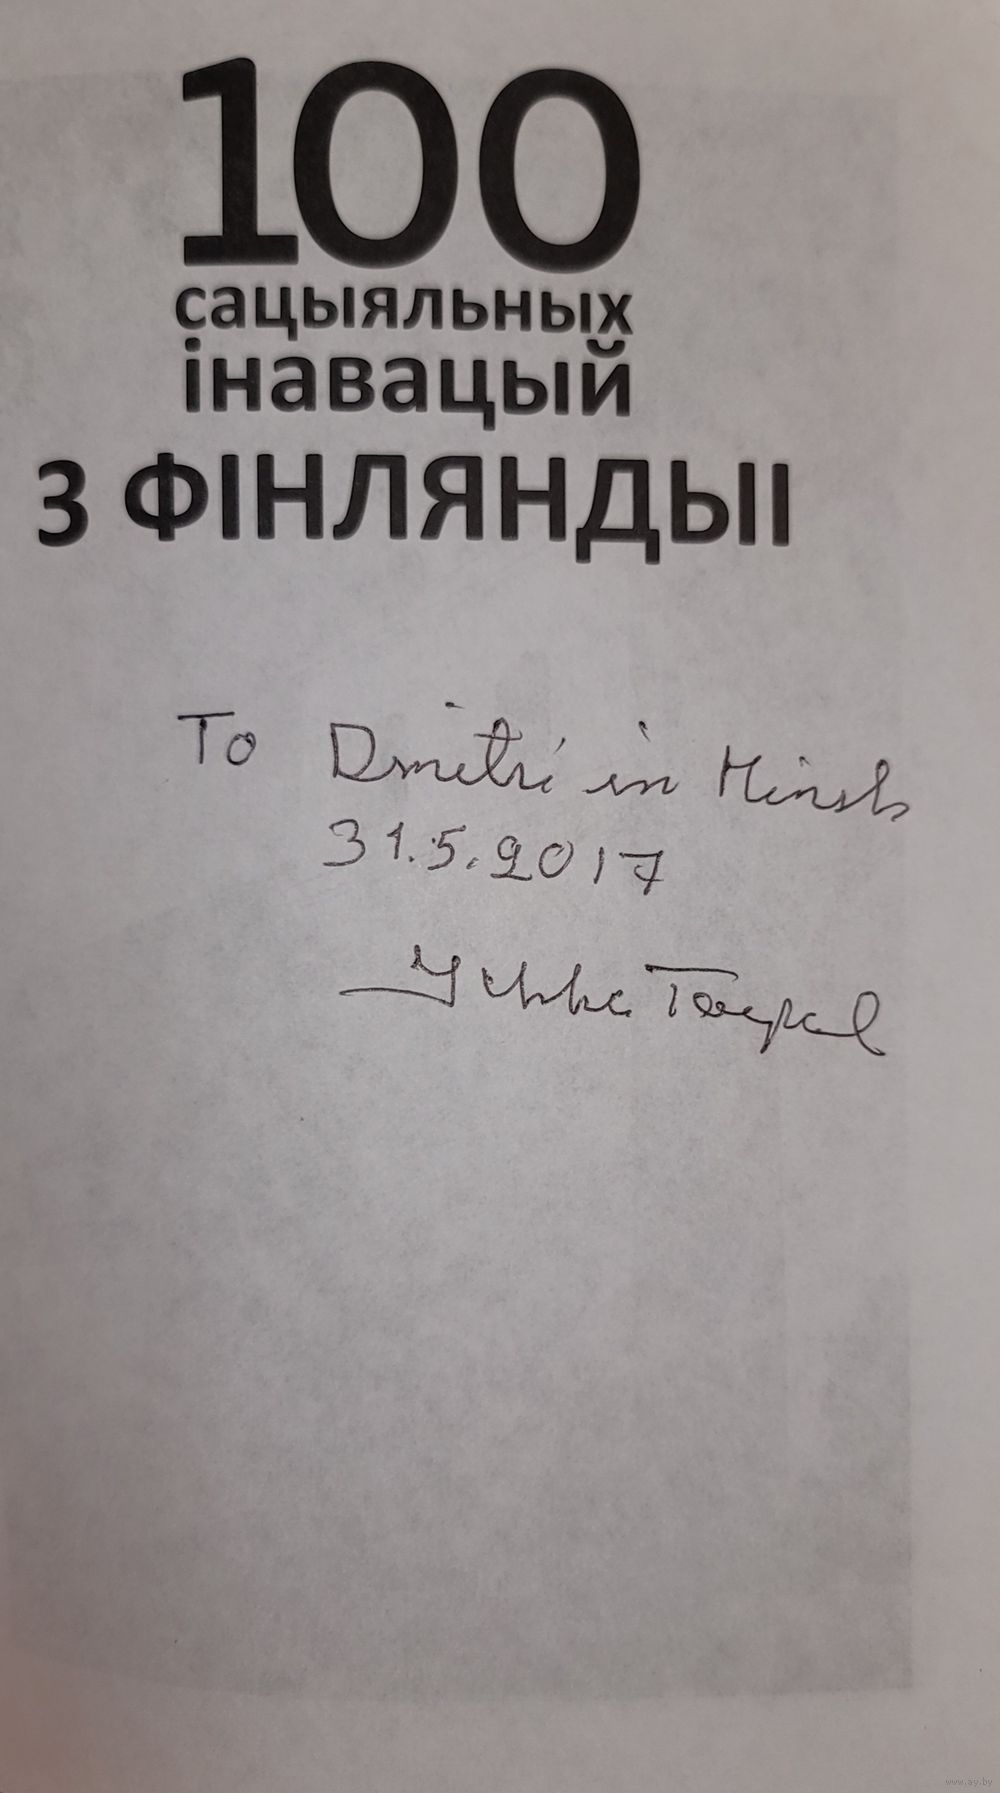 100
сацыяльных
інавацый
З ФІНЛЯНДЫІ
To Dmitri in Minsk
31.5.2017
Ilkka Taipale
www.ay.by